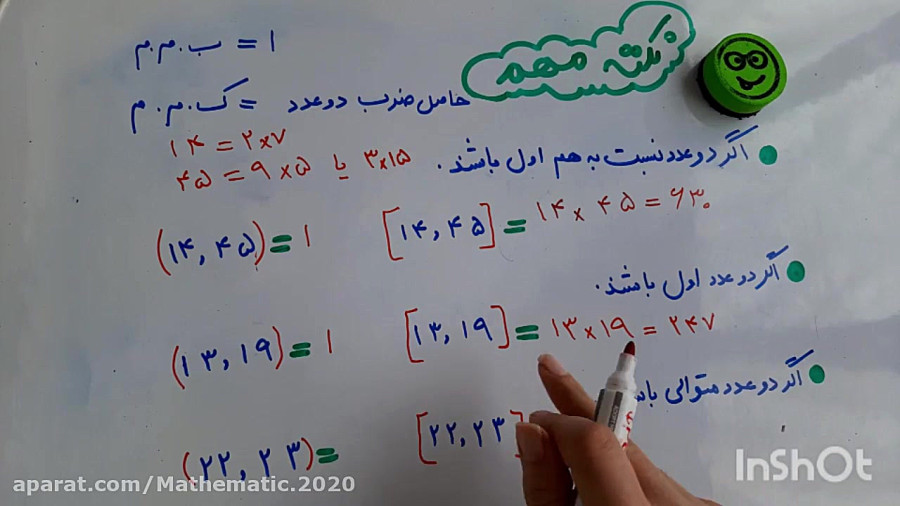 نکته مهم
ب.م.م = ۱
ک.م.م = حاصل ضرب دو عدد
اگر دو عدد نسبت به هم اول باشند.
۱۴ = ۲×۷
۴۵ = ۹×۵ یا ۳×۱۵
(۱۴, ۴۵) = ۱
[۱۴, ۴۵] = ۱۴ × ۴۵ = ۶۳۰
اگر دو عدد اول باشند.
(۱۳, ۱۹) = ۱
[۱۳, ۱۹] = ۱۳ × ۱۹ = ۲۴۷
اگر دو عدد متوالی
(۲۲, ۲۳) =
[۲۲, ۲۳]
InShOt
aparat.com/Mathematic.2020